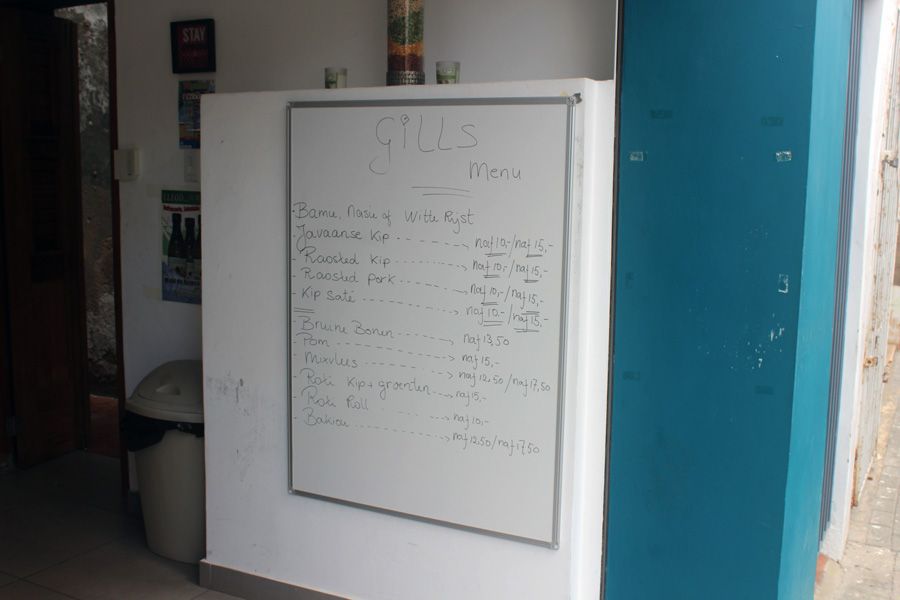 STAY
GiLLS
Menu
- Bami, Nasi of Witte Rijst
- Javaanse Kip ----> naf 10,-/naf 15,-
- Raosted kip ----> naf 10,-/naf 15,-
- Raosted pork ----> naf 10,-/naf 15,-
- Kip saté ----> naf 10,-/naf 15,-
- Bruine Bonen ----> naf 13,50
- Pom ----> naf 15,-
- Mixvlees ----> naf 12,50/naf 17,50
- Roti Kip + groenten ----> naf 15,-
- Roti Roll ----> naf 10,-
- Bakiou ----> naf 12,50/naf 17,50